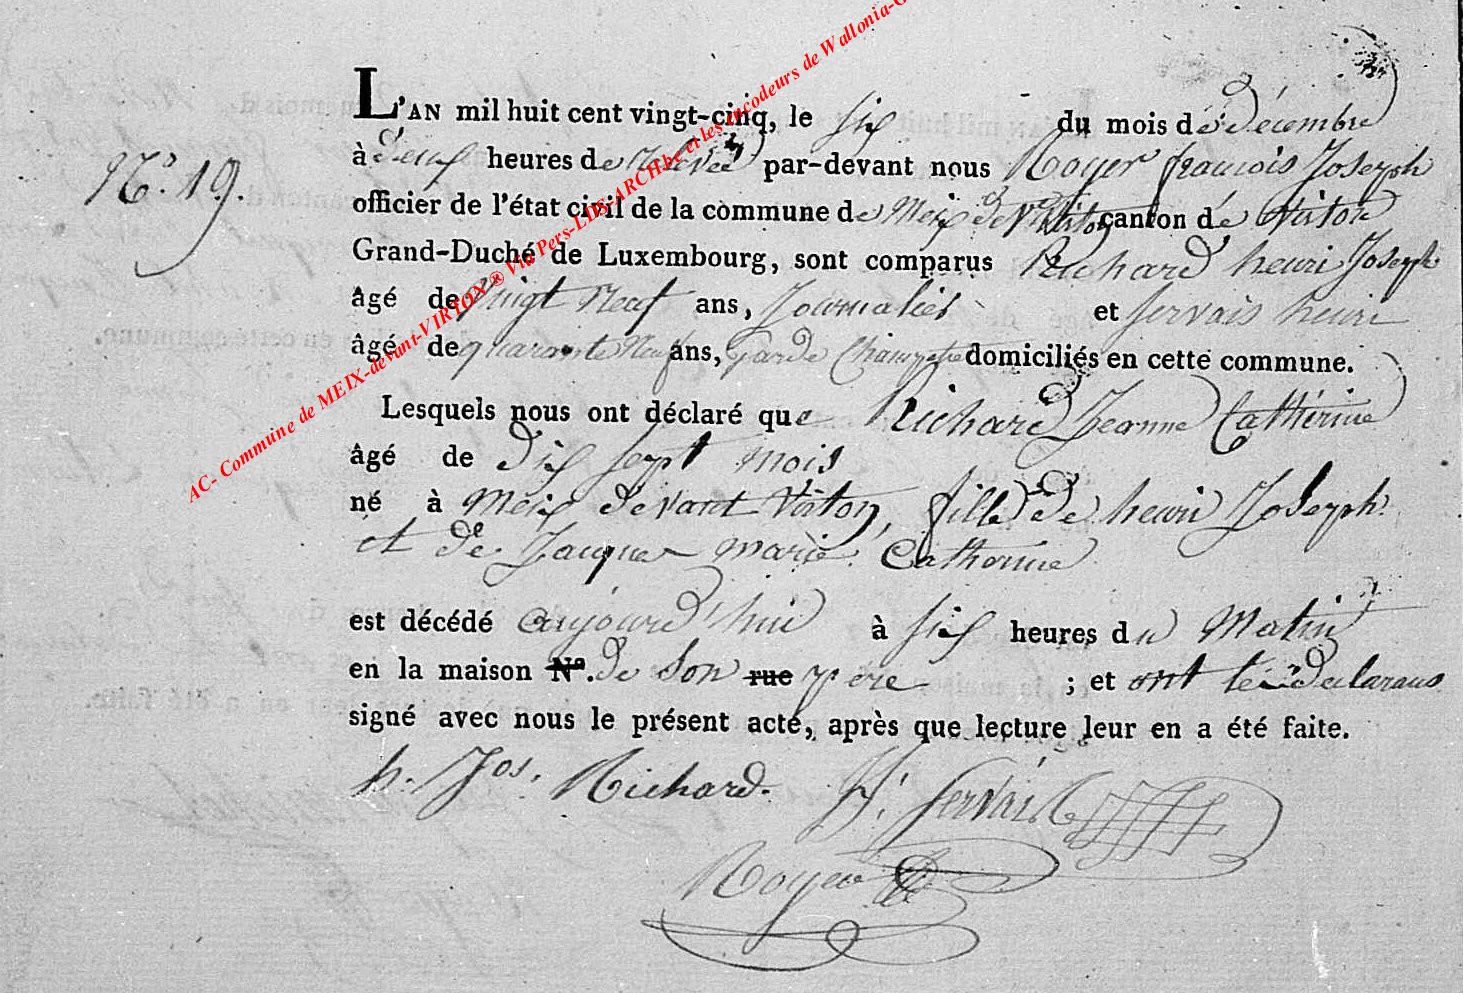 AC- Commune de MEIX-devant-VIRTON ® Via Pers-LDS-ARCH.be et les encodeurs de Wallonia-G
L'AN mil huit cent vingt-cinq, le six du mois de décembre
N.° 19.
à deux heures de relevée par-devant nous Royer francois Joseph
officier de l'état civil de la commune de Meix devt Virton canton de Virton
Grand-Duché de Luxembourg, sont comparus Richard henri Joseph
âgé de vingt Neuf ans, Journalier et Servais henri
âgé de quarante Neuf ans, Garde Champetre domiciliés en cette commune.
Lesquels nous ont déclaré que Richard Jeanne Cathérine
âgé de dix sept mois
né à Meix devant Virton, fille de henri Joseph
et de Jacques marie Catherine
est décédé aujourd'hui à six heures du Matin
en la maison N°. de son rue pere ; et ont les declarans
signé avec nous le présent acte, après que lecture leur en a été faite.
h. Jos. Richard. H. Servais
Royer